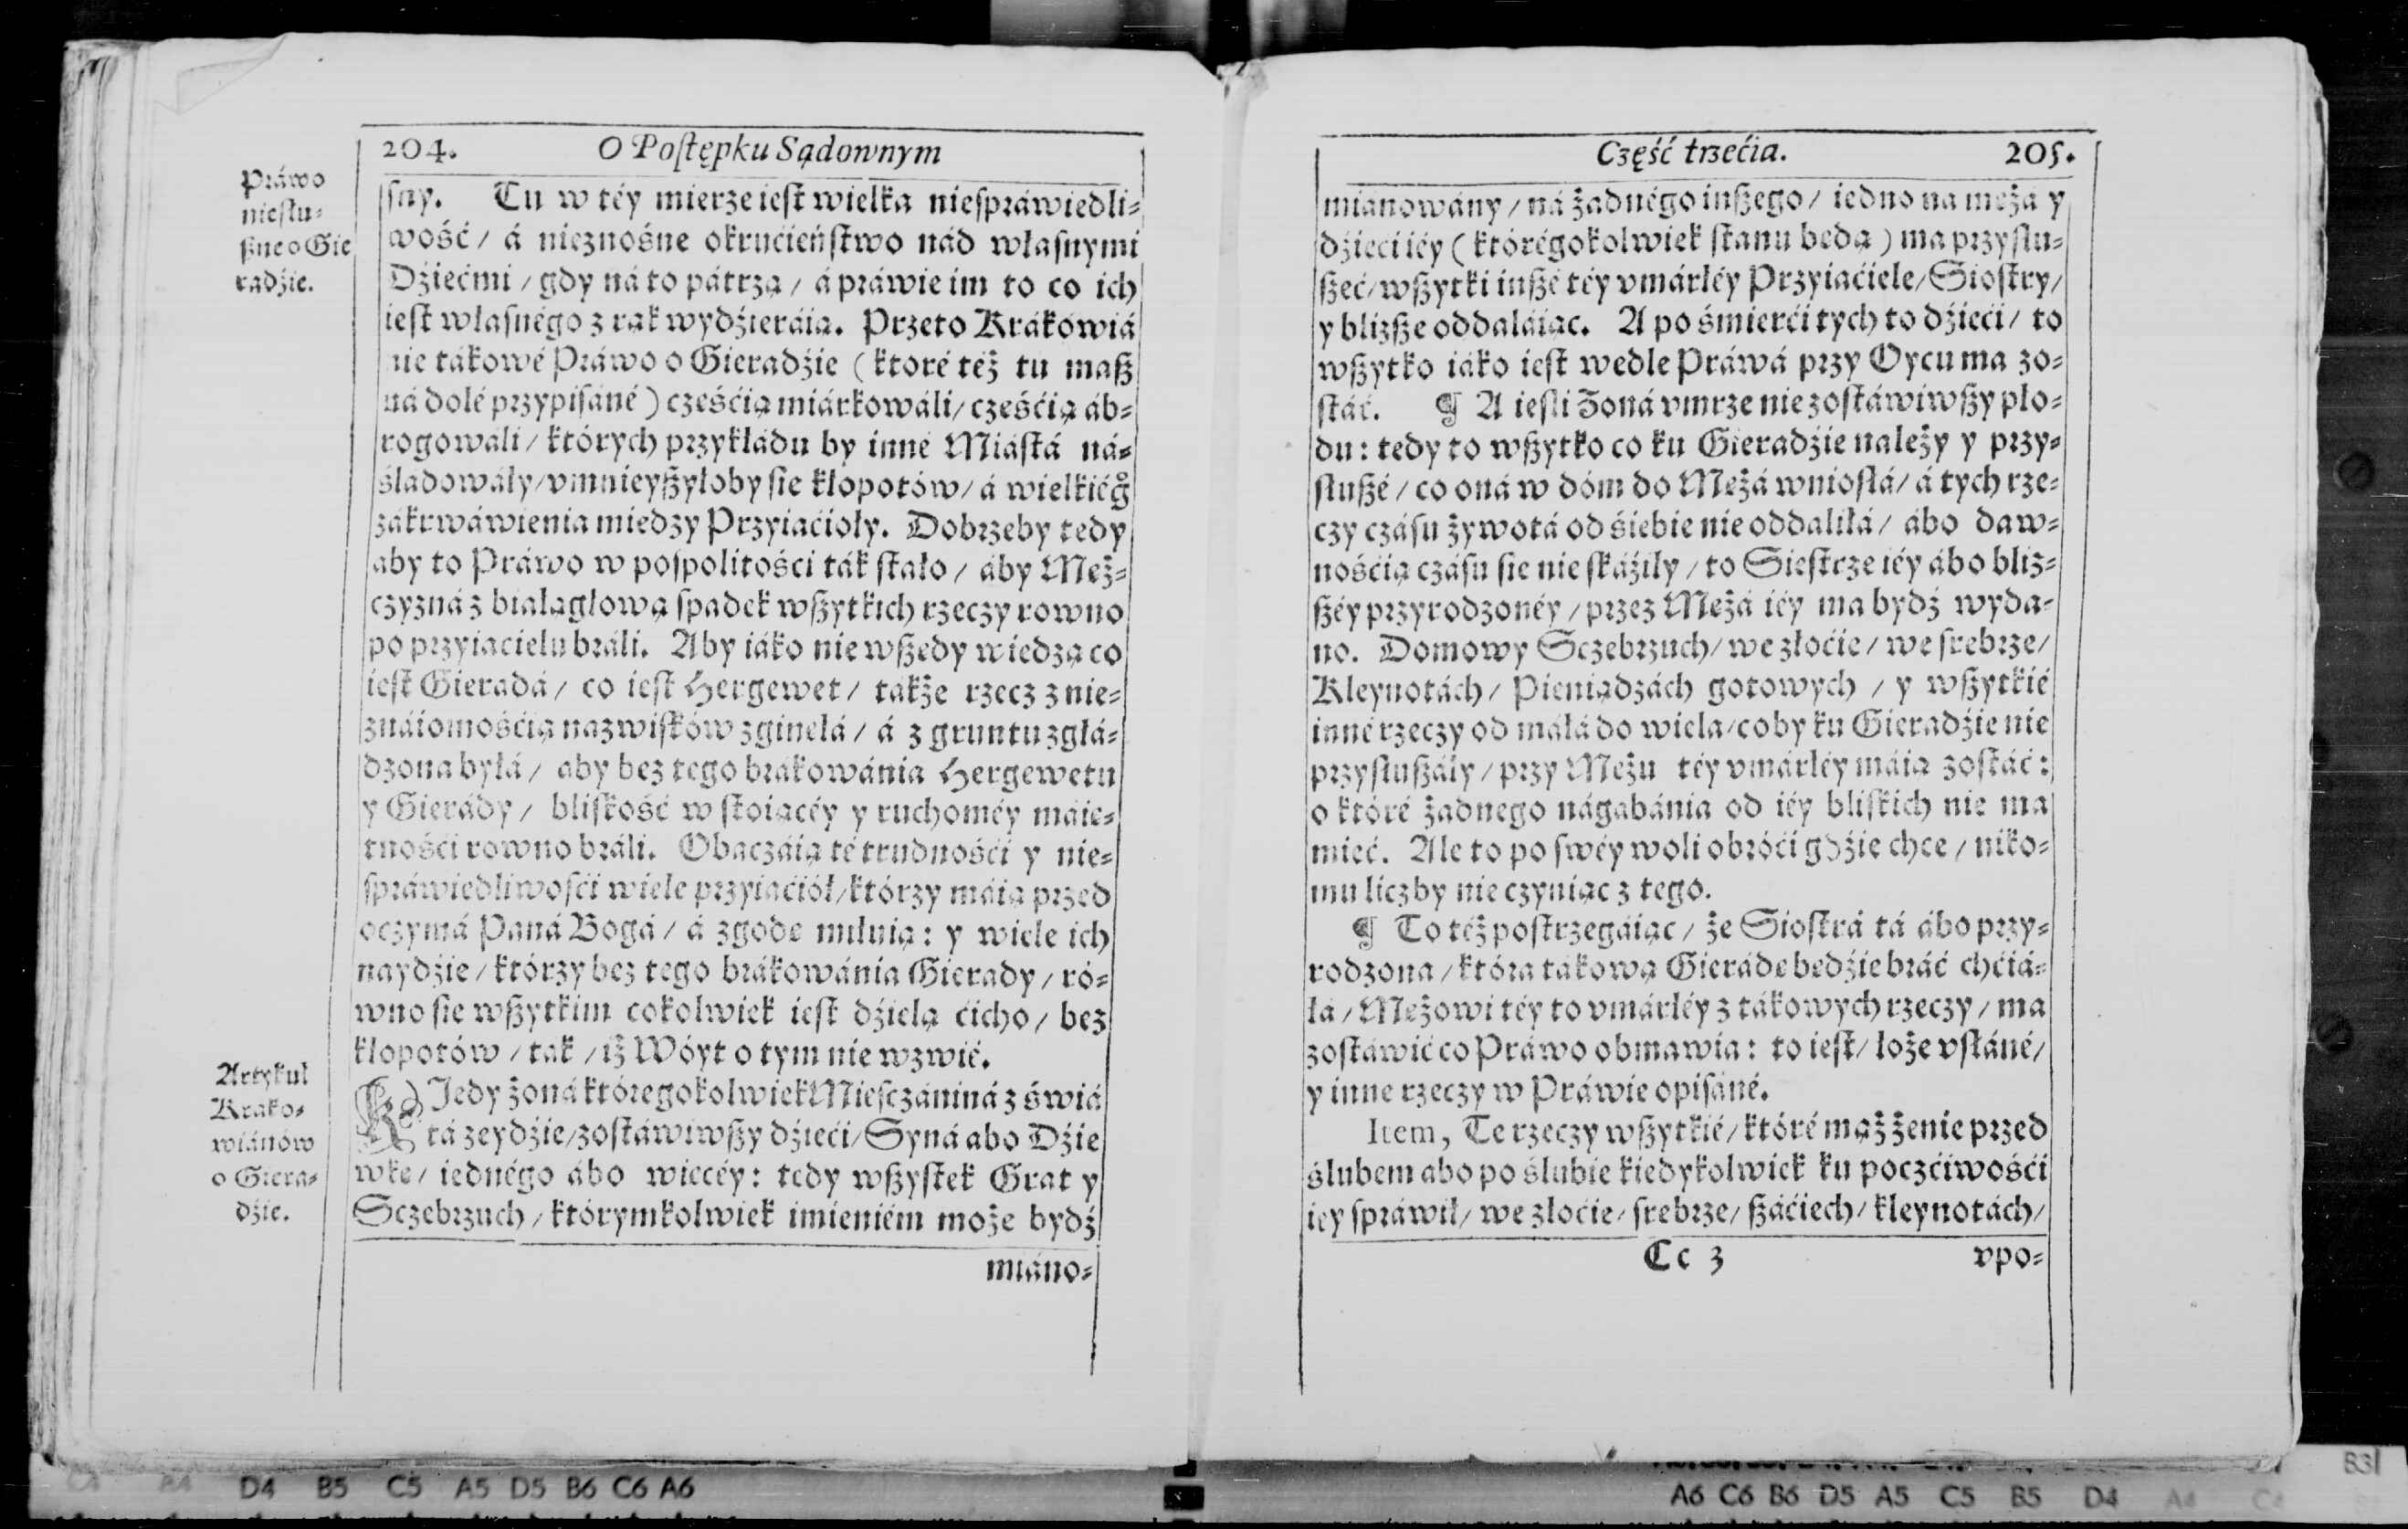 204. O Postępku Sądownym
Práwo
niesłu-
szne o Gie
radźie.
sny. Tu w téy mierze iest wielka niespráwiedli-
wość / á nieznośne okrućieństwo nád własnymi
Dźiećmi / gdy ná to pátrzą / á práwie im to co ich
iest własnégo z rąk wydźieráią. Przeto Krákówiá
nie tákowé Práwo o Gieradźie (ktoré też tu masz
ná dolé przypisáné) cześćią miárkowáli / cześćią áb-
rogowáli / których przykłádu by inné Miástá ná-
śladowáły / vmnieyszyłoby sie kłopotów / á wielkiég̊
zákrwáwienia miedzy Przyiaćioły. Dobrzeby tedy
aby to Práwo w pospolitości ták stało / áby Meż-
czyzná z białągłową spadek wszytkich rzeczy rowno
po przyiacielu bráli. Aby iáko nie wszedy wiedzą co
iest Gieradá / co iest Hergewet / także rzecz z nie-
znáiomośćią nazwisków zginełá / á z gruntu zgłá-
dzona byłá / aby bez tego brákowánia Hergewetu
y Gierády / bliskość w stoiącéy y ruchoméy máie-
tnośći rowno bráli. Obaczáią té trudnośći y nie-
spráwiedliwosći wiele przyiaćiół / którzy máią przed
oczymá Paná Bogá / á zgode miłuią: y wiele ich
naydźie / którzy bez tego brákowánia Gierady / ró-
wno sie wszytkim cokolwiek iest dźielą ćicho / bez
kłopotów / tak / iż Wóyt o tym nie wzwié.
Artykuł
Krako-
wiánów
o Giera-
dźie.
KJedy żoná któregokolwiek Miesczániná z świá
tá zeydźie / zostáwiwszy dźieći / Syná abo Dźie
wke / iednégo ábo wiecéy: tedy wszystek Grat y
Sczebrzuch / którymkolwiek imieniém może bydź
miáno-
Część trzećia. 205.
miánowány / ná żadnégo inszego / iedno na meżá y
dźieći iéy (którégokolwiek stanu bedą) ma przysłu-
szeć / wszytki inszé téy vmárłéy Przyiaćiele / Siostry /
y bliższe oddaláiąc. A po śmierći tych to dźieći / to
wszytko iáko iest wedle Práwá przy Oycu ma zo-
stáć. ¶ A iesli Żoná vmrze nie zostáwiwszy pło-
du: tedy to wszytko co ku Gieradźie należy y przy-
słuszé / co oná w dóm do Meżá wniosłá / á tych rze-
czy czásu żywotá od śiebie nie oddaliłá / ábo daw-
nośćią czásu sie nie skáźiły / to Siestrze iéy ábo bliz-
széy przyrodzonéy / przez Meżá iéy ma bydź wyda-
no. Domowy Sczebrzuch / we złoćie / we srebrze /
Kleynotách / Pieniądzách gotowych / y wszytkié
inné rzeczy od máłá do wiela / coby ku Gieradźie nie
przysłuszáły / przy Meżu téy vmárłéy máią zostáć:
o któré żadnego nágabánia od iéy bliskich nie ma
mieć. Ale to po swéy woli obróći gdźie chce / niko-
mu liczby nie czyniąc z tego.
¶ To też postrzegáiąc / że Siostrá tá ábo przy-
rodzona / która tákową Gieráde bedźie bráć chćiá-
łá / Meżowi téy to vmárłéy z tákowych rzeczy / ma
zostáwić co Práwo obmawia: to iest / łoże vsłáné /
y inne rzeczy w Práwie opisáné.
Item, Te rzeczy wszytkié / któré mąż żenie przed
ślubem abo po ślubie kiedykolwiek ku poczćiwośći
iey spráwił / we złoćie / srebrze / száćiech / kleynotách /
Cc 3 vpo-
A6 C6 B6 D5 A5 C5 B5 D4 A4
D4 B5 C5 A5 D5 B6 C6 A6
B3